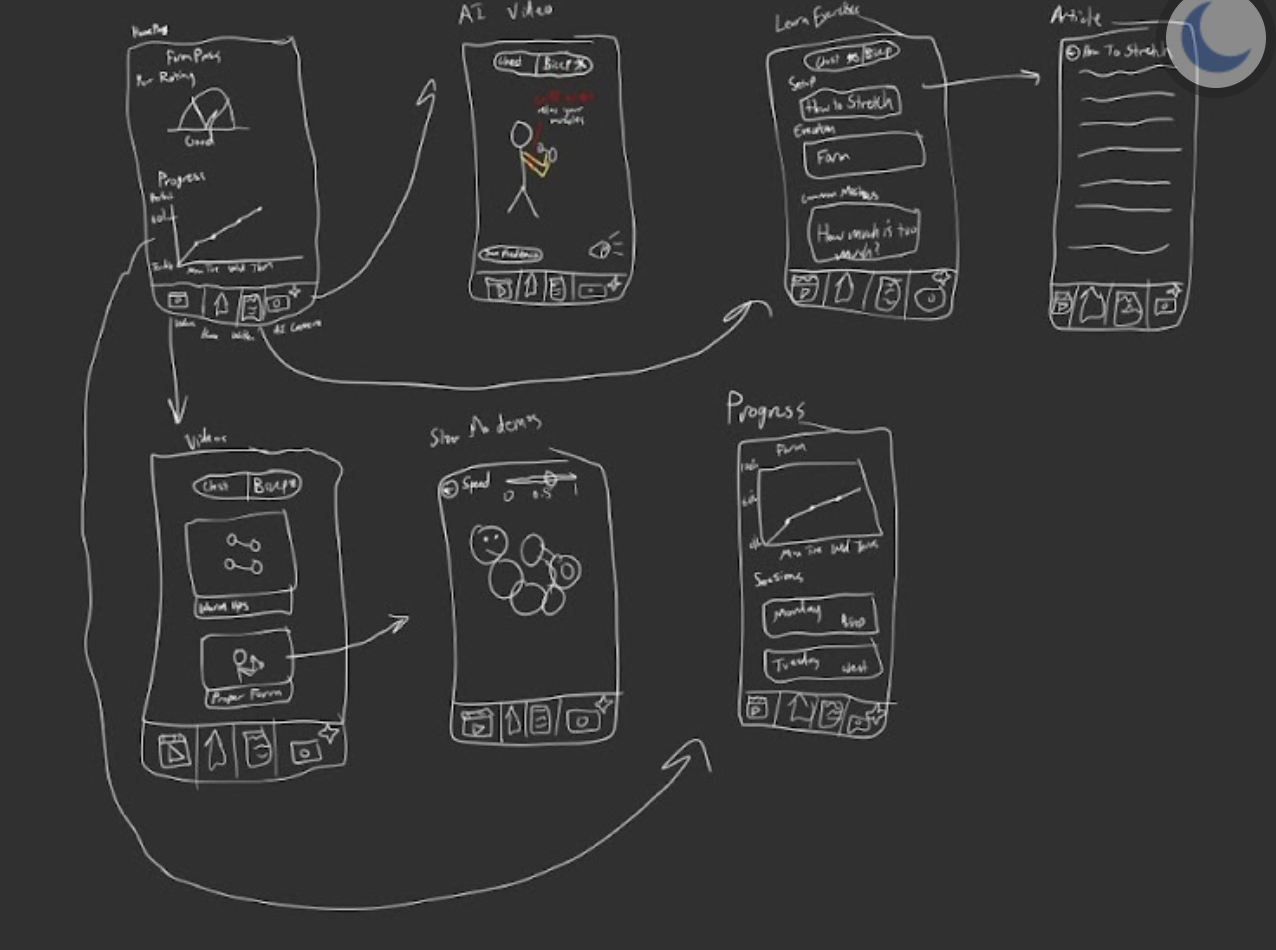 HomePage
FormPress
Rating
Good
Progress
Mon Tue Wed Thurs
Videos
AI Camera
AI Video
Chest
Bicep
relax your
muscles
Learn Exercises
Chest
Bicep
Setup
How to Stretch
Execution
Form
Common Mistakes
How much is too
much?
Article
How To Stretch
Videos
Chest
Biceps
Warm Ups
Proper Form
Slow Mo demos
Speed
0 0.5 1
Progress
Form
Mon Tue Wed Thurs
Sessions
Monday
Bicep
Tuesday
chest